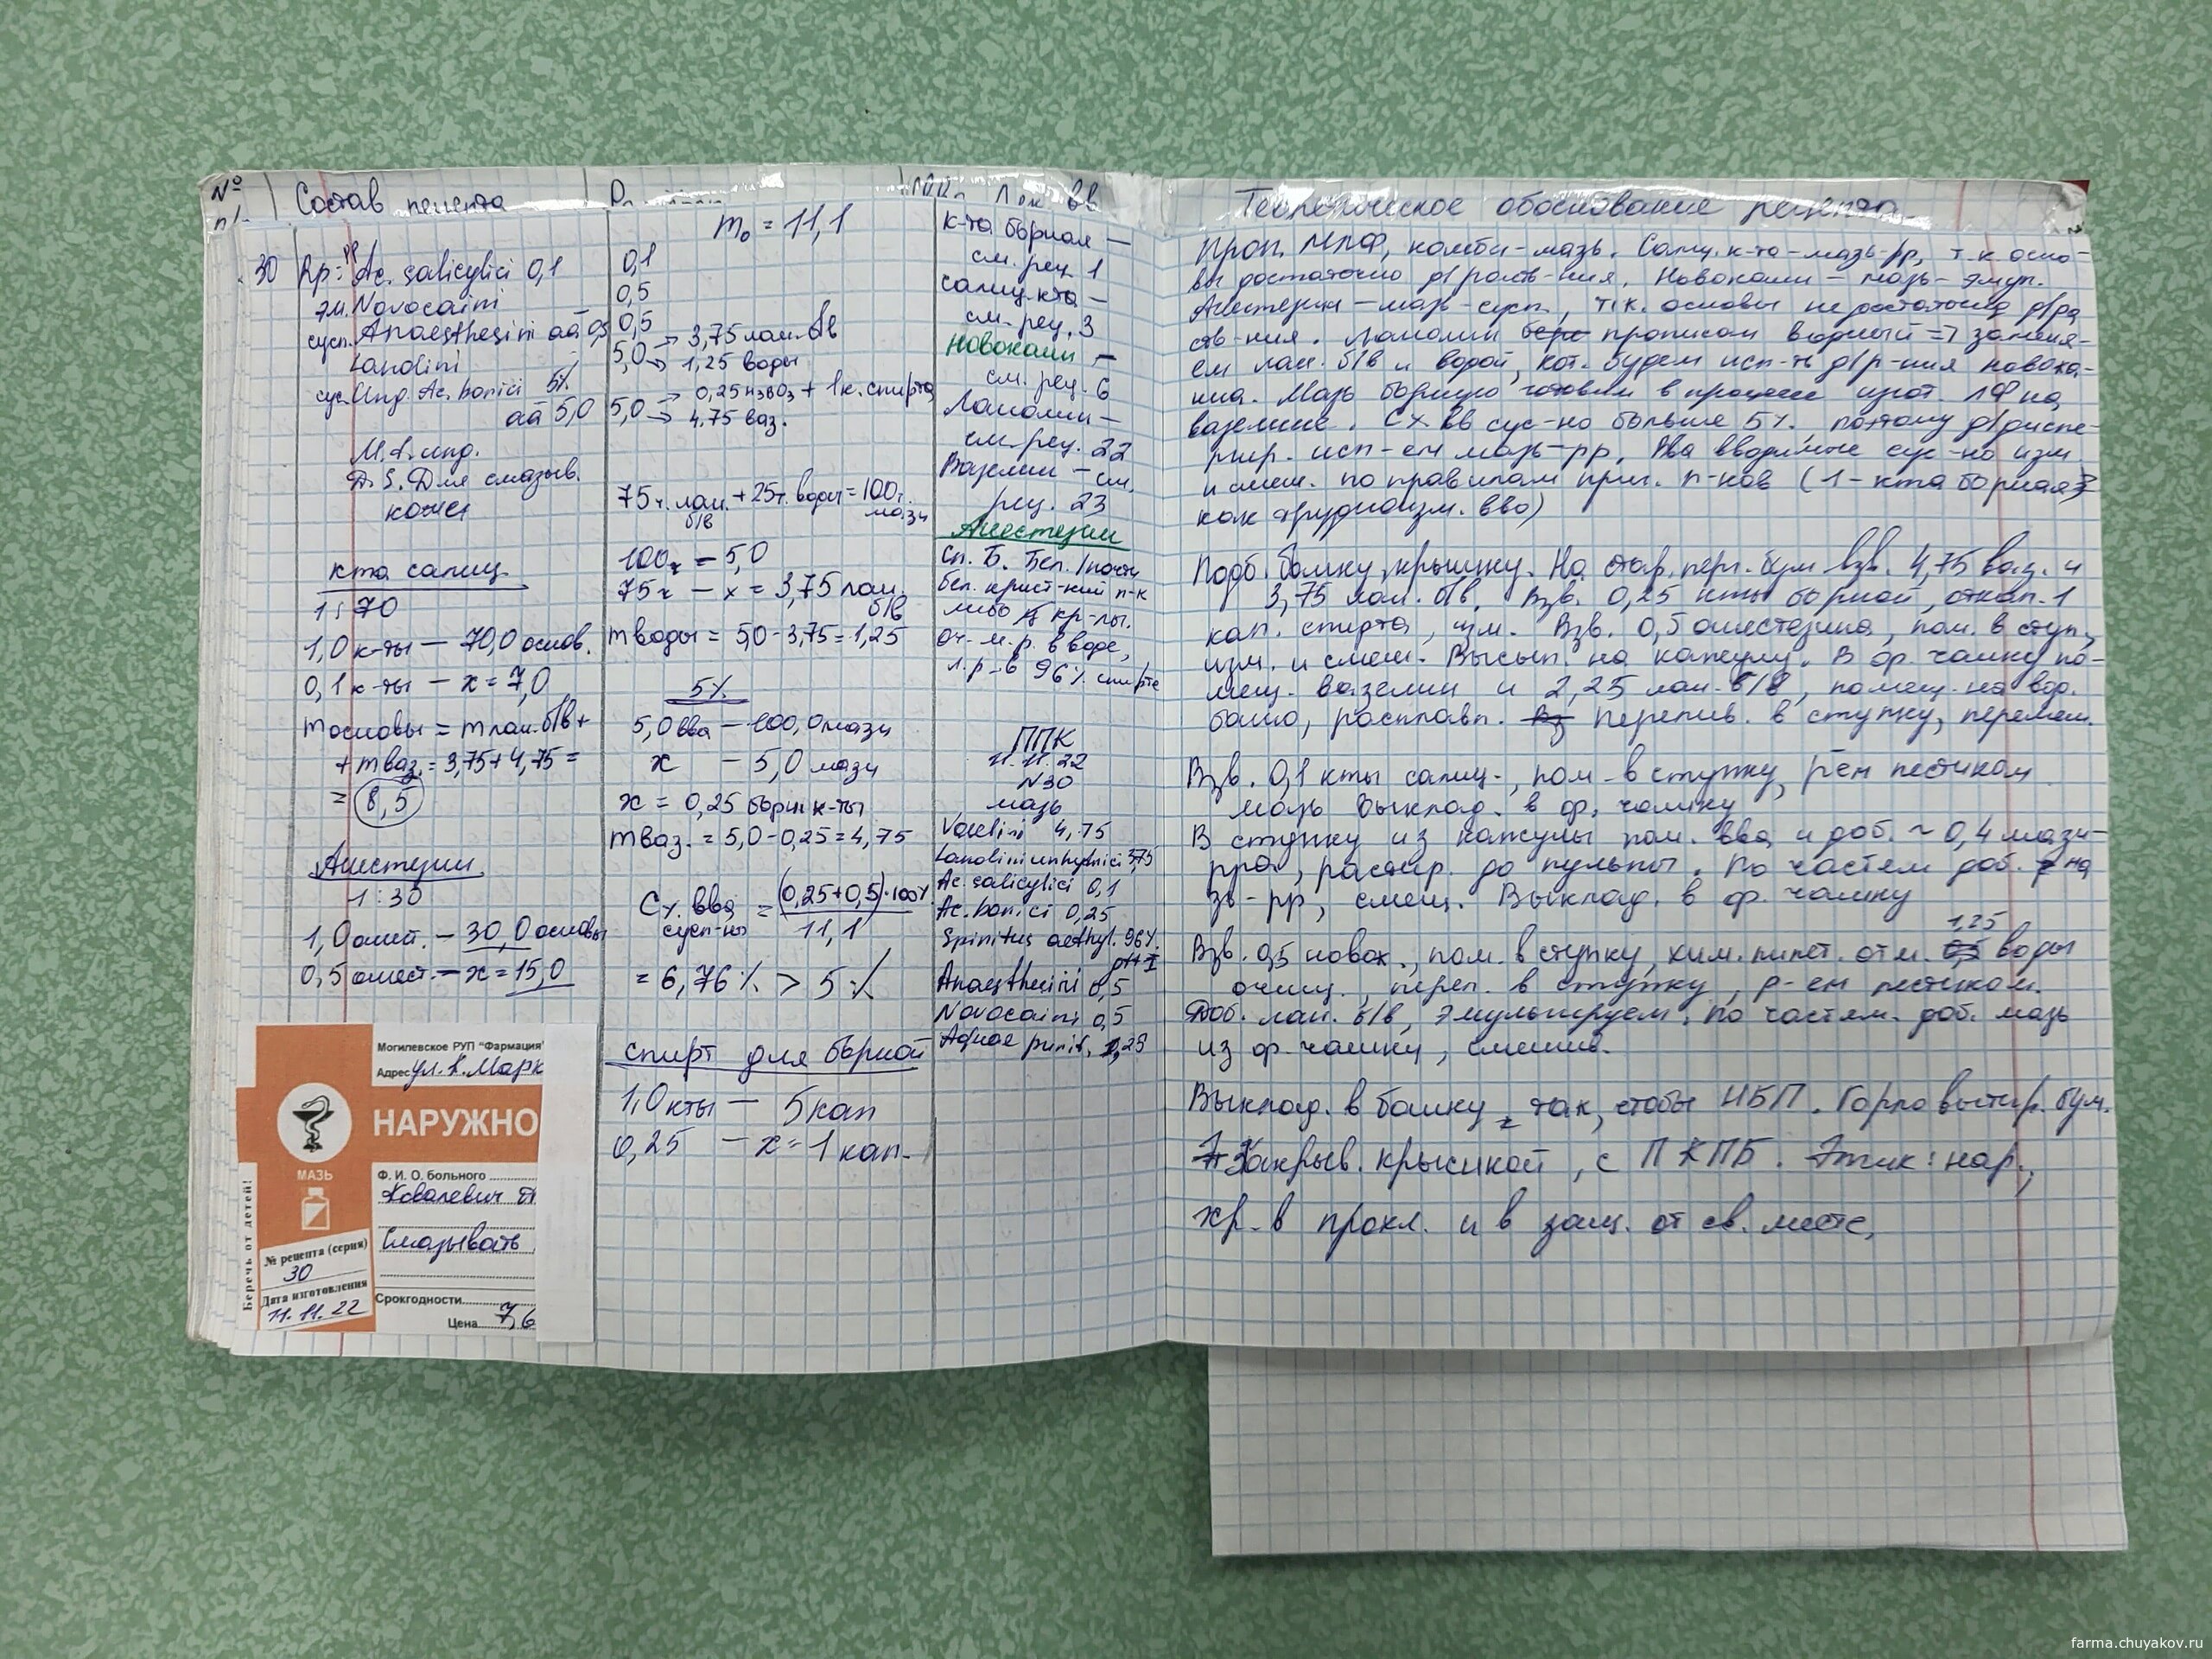 №
Состав рецепта
m₀ = 11,1
30 Rp: Ac. salicylici 0,1
эм. Novocaini
сусп. Anaesthesini aa 0,5
Lanolini
сус. Ung. Ac. borici 5%
aa 5,0
M. f. ung.
D. S. Для смазыв.
кожи
кта салиц.
1 : 70
1,0 к-ты — 70,0 основ.
0,1 к-ты — x = 7,0
m основы = m лан. б/в +
+ m ваз. = 3,75 + 4,75 =
= 8,5
Анестезин
1 : 30
1,0 анест. — 30,0 основы
0,5 анест. — x = 15,0
Могилевское РУП "Фармация"
Адрес ул. К. Марк
НАРУЖНО
МАЗЬ
Ф. И. О. больного
Ковалевич
Смазывать
Беречь от детей!
№ рецепта (серия)
30
Дата изготовления
11.11.22
Срок годности
Цена 7,6
0,1
0,5
0,5
5,0 → 3,75 лан. б/в
→ 1,25 воды
5,0 → 0,25 H₃BO₃ + 1к. спирта
→ 4,75 ваз.
75ч. лан. б/в + 25ч. воды = 100ч. мази
100ч — 5,0
75ч — x = 3,75 лан. б/в
m воды = 5,0 - 3,75 = 1,25
5%
5,0 вва — 100,0 мази
x — 5,0 мази
x = 0,25 борн к-ты
m ваз. = 5,0 - 0,25 = 4,75
C% вва сусп-но = (0,25+0,5)·100% / 11,1
= 6,76% > 5%
спирт для борной
1,0 кты — 5 кап
0,25 — x = 1 кап.
к-та борная —
см. рец. 1
салиц. кта —
см. рец. 3
Новокаин —
см. рец. 6
Ланолин —
см. рец. 22
Вазелин — см.
рец. 23
Анестезин
Сп. Б. Бел. / почти
бел. крист-кий п-к
либо кр-лы.
Оч. м. р. в воде,
л. р. в 96% спирте
ППК
11.11.22
N30
мазь
Vaselini 4,75
Lanolini unhydrici 3,75
Ac. salicylici 0,1
Ac. borici 0,25
Spiritus aethyl. 96%
gtt I
Anaesthesini 0,5
Novocaini 0,5
Aquae purif. 1,25
Теоретическое обоснование рецепта
Проп. МЛФ, комби-мазь. Салиц. к-та - мазь-рр, т.к осно-
вы достаточно д/раств-ния. Новокаин — мазь-эмул.
Анестезин — мазь-сусп., т.к. основы не достаточно д/ра
ств-ния. Ланолин прописан водный => заменя-
ем лан. б/в и водой, кот. будем исп-ть д/р-ния новока-
ина. Мазь борную готовим в процессе изгот. ЛФ на
вазелине. C% вв сус-но больше 5%. поэтому д/диспе-
ргир. исп-ем мазь-рр. Вва вводимые сус-но изм.
и смеш. по правилам приг. п-ков (1 - кта борная
как трудноизм. вво)
Подб. банку, крышку. На стар. перг. бум взв. 4,75 ваз. и
3,75 лан. б/в. Взв. 0,25 кты борной, откап. 1
кап. спирта, изм. Взв. 0,5 анестезина, пом. в ступ,
изм. и смеш. Высып. на капсулу. В ф. чашку по-
мещ. вазелин и 2,25 лан. б/в, помещ. на вод.
баню, расплавл. Перелив. в ступку, перемеш.
Взв. 0,1 кты салиц., пом. в ступку, р-ем пестиком
мазь выклад. в ф. чашку
В ступку из капсулы пом. вва и доб. ~ 0,4 мази-
рра, растир. до пульпы. По частям доб. на
зь-рр, смеш. Выклад. в ф. чашку
Взв. 0,5 новок., пом. в ступку, хим. пипет. отм. 1,25 воды
очищ., перел. в ступку, р-ем пестиком.
Доб. лан. б/в, эмульгируем. По частям доб. мазь
из ф. чашки, смешив.
Выклад. в банку, так, чтобы НБП. Горло вытир. бум.
Закрыв. крышкой, с ПКПБ. Этик: нар.,
хр. в прохл. и в защ. от св. месте.
farma.chuyakov.ru